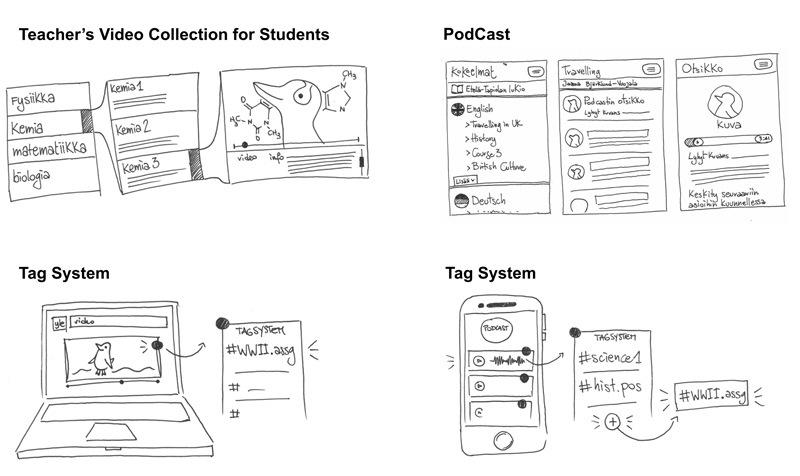 Teacher's Video Collection for Students
Fysiikka
Kemia
matematiikka
biologia
Kemia 1
Kemia 2
Kemia 3
CH₃
N
N
O
H₃C
N
N
CH₃
O
video info
PodCast
Kokeelmat
Etelä-Tapiolan lukio
English
> Travelling in UK
> History
> Course 3
> British Culture
Lisää
Deutsch
Travelling
Björklund-
Podcastin otsikko
Lyhyt Kuvaus
Otsikko
Kuva
Lyhyt Kuvaus
Keskity seuraaviin
asioihin kuunnellessa
Tag System
yle
video
TAGSYSTEM
#WWII.assg
#
#
Tag System
PODCAST
TAGSYSTEM
#science1
#hist.pos
+
#WWII.assg